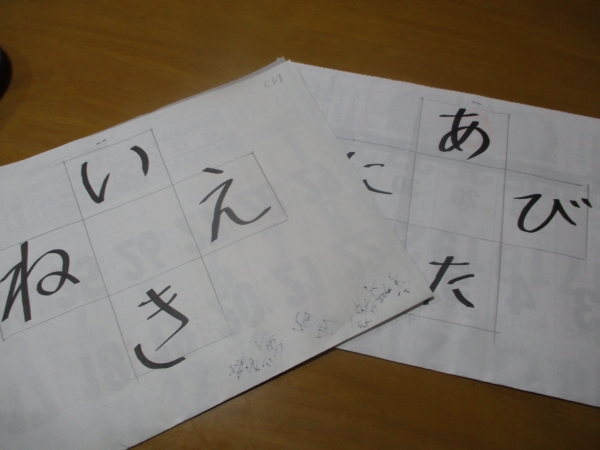 い
ね え
き
あ
に び
た